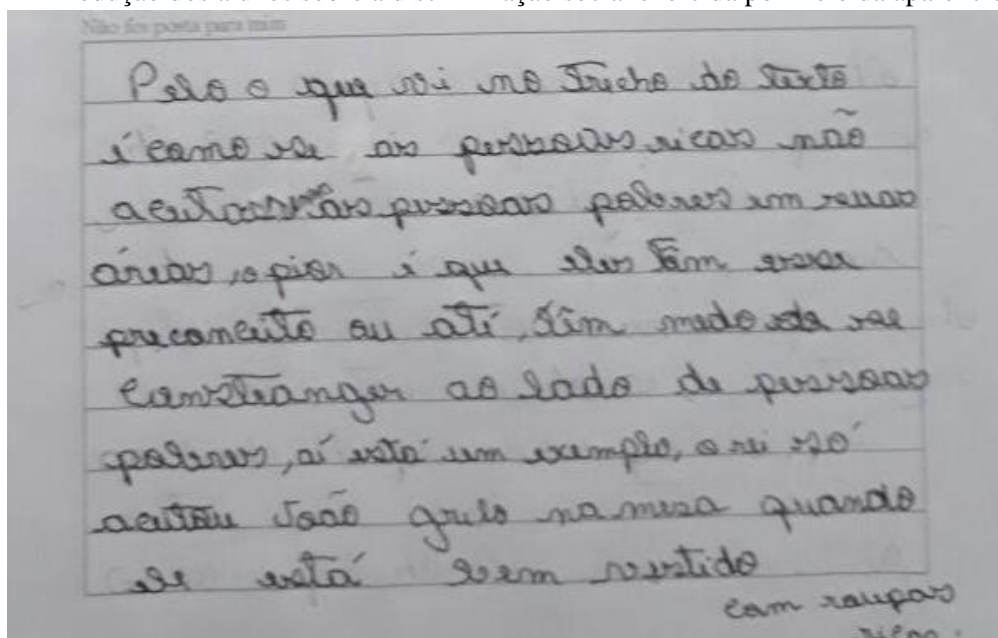 Não foi posta para mim
Pelo o que vi no trecho do texto
é como se as pessoas ricas não
aceitassem as pessoas pobres em suas
áreas, o pior é que eles têm esse
preconceito ou até, têm medo de se
constranger ao lado de pessoas
pobres, aí está um exemplo, o rei só
aceitou João grilo na mesa quando
se está bem vestido
com roupas
ricas.